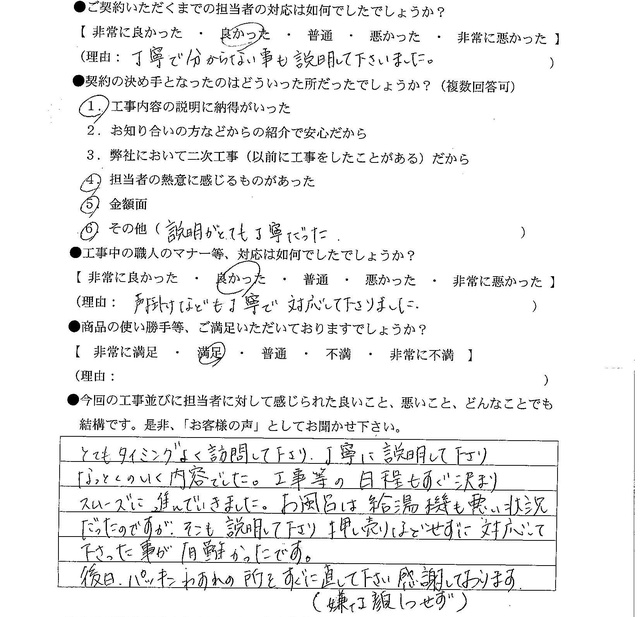 ●ご契約いただくまでの担当者の対応は如何でしたでしょうか？
【 非常に良かった ・ 良かった ・ 普通 ・ 悪かった ・ 非常に悪かった 】
(理由： 丁寧で分からない事も説明して下さいました。 )
●契約の決め手となったのはどういった所だったでしょうか？（複数回答可）
１．工事内容の説明に納得がいった
２．お知り合いの方などからの紹介で安心だから
３．弊社において二次工事（以前に工事をしたことがある）だから
４．担当者の熱意に感じるものがあった
５．金額面
６．その他（ 説明がとても丁寧だった. ）
●工事中の職人のマナー等、対応は如何でしたでしょうか？
【 非常に良かった ・ 良かった ・ 普通 ・ 悪かった ・ 非常に悪かった 】
(理由： 声掛けなども丁寧で 対応して下さりました. )
●商品の使い勝手等、ご満足いただいておりますでしょうか？
【 非常に満足 ・ 満足 ・ 普通 ・ 不満 ・ 非常に不満 】
(理由： )
●今回の工事並びに担当者に対して感じられた良いこと、悪いこと、どんなことでも
結構です。是非、「お客様の声」としてお聞かせ下さい。
とてもタイミングよく訪問して下さり、丁寧に説明して下さり
なっとくのいく内容でした。工事等の日程もすぐ決まり
スムーズに進んでいきました。お風呂は給湯機も悪い状況
だったのですが、そこも説明して下さり 押し売りなどせずに対応して
下さった事が有難かったです。
後日、パッキンわれの所もすぐに直して下さい感謝しております.
(嫌な顔1つせず)